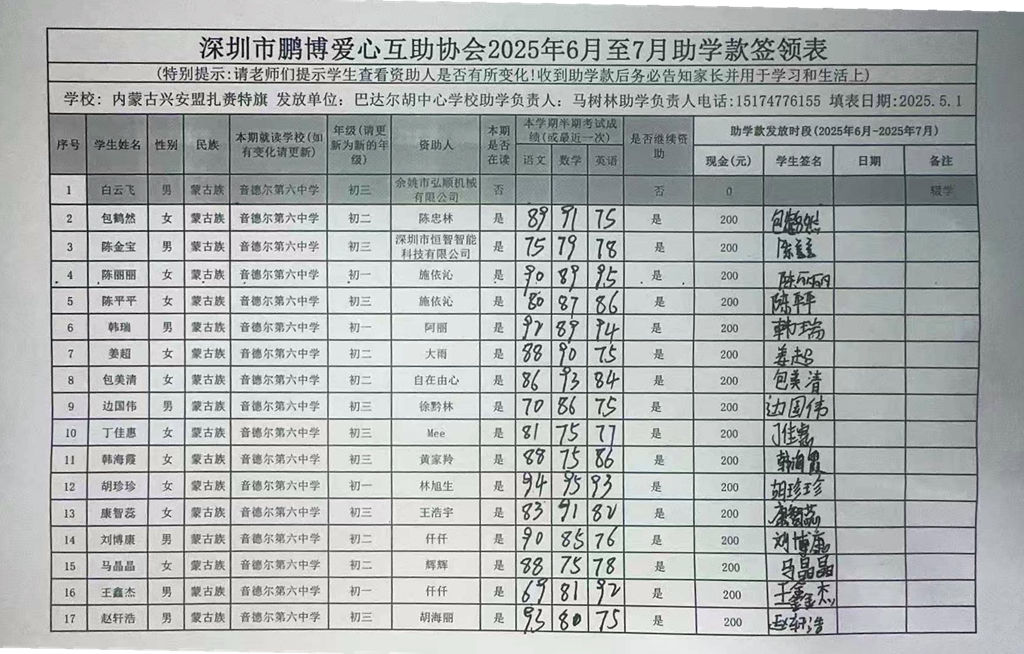 深圳市鹏博爱心互助协会2025年6月至7月助学款签领表
(特别提示:请老师们提示学生查看资助人是否有所变化!收到助学款后务必告知家长并用于学习和生活上)
学校: 内蒙古兴安盟扎赉特旗 发放单位: 巴达尔胡中心学校助学负责人: 马树林助学负责人电话:15174776155 填表日期:2025.5.1
序号 学生姓名 性别 民族 本期就读学校(如有变化请更新) 年级(请更新为新的年级) 资助人 本期是否在读 本学期半期考试成绩(或最近一次) 语文 数学 英语 是否继续资助 助学款发放时段(2025年6月-2025年7月) 现金(元) 学生签名 日期 备注
1 白云飞 男 蒙古族 音德尔第六中学 初三 余姚市弘顺机械有限公司 否 否 0 辍学
2 包鹤然 女 蒙古族 音德尔第六中学 初二 陈忠林 是 89 91 75 是 200 包鹤然
3 陈金宝 男 蒙古族 音德尔第六中学 初三 深圳市恒智智能科技有限公司 是 75 79 78 是 200
4 陈丽丽 女 蒙古族 音德尔第六中学 初一 施依沁 是 90 89 95 是 200 陈丽丽
5 陈平平 女 蒙古族 音德尔第六中学 初三 施依沁 是 80 87 86 是 200 陈平平
6 韩瑞 男 蒙古族 音德尔第六中学 初一 阿丽 是 92 89 94 是 200 韩瑞
7 姜超 女 蒙古族 音德尔第六中学 初二 大雨 是 88 90 75 是 200 姜超
8 包美清 女 蒙古族 音德尔第六中学 初二 自在由心 是 86 93 84 是 200 包美清
9 边国伟 男 蒙古族 音德尔第六中学 初三 徐黔林 是 70 86 75 是 200 边国伟
10 丁佳惠 女 蒙古族 音德尔第六中学 初三 Mee 是 81 75 77 是 200 丁佳惠
11 韩海霞 女 蒙古族 音德尔第六中学 初三 黄家羚 是 88 75 86 是 200 韩海霞
12 胡珍珍 女 蒙古族 音德尔第六中学 初一 林旭生 是 94 95 93 是 200 胡珍珍
13 康智蕊 女 蒙古族 音德尔第六中学 初三 王浩宇 是 83 91 82 是 200 康智蕊
14 刘博康 男 蒙古族 音德尔第六中学 初二 仟仟 是 90 85 76 是 200 刘博康
15 马晶晶 女 蒙古族 音德尔第六中学 初二 辉辉 是 88 75 78 是 200 马晶晶
16 王鑫杰 男 蒙古族 音德尔第六中学 初一 仟仟 是 69 81 92 是 200 王鑫杰
17 赵轩浩 男 蒙古族 音德尔第六中学 初三 胡海丽 是 93 80 75 是 200 赵轩浩